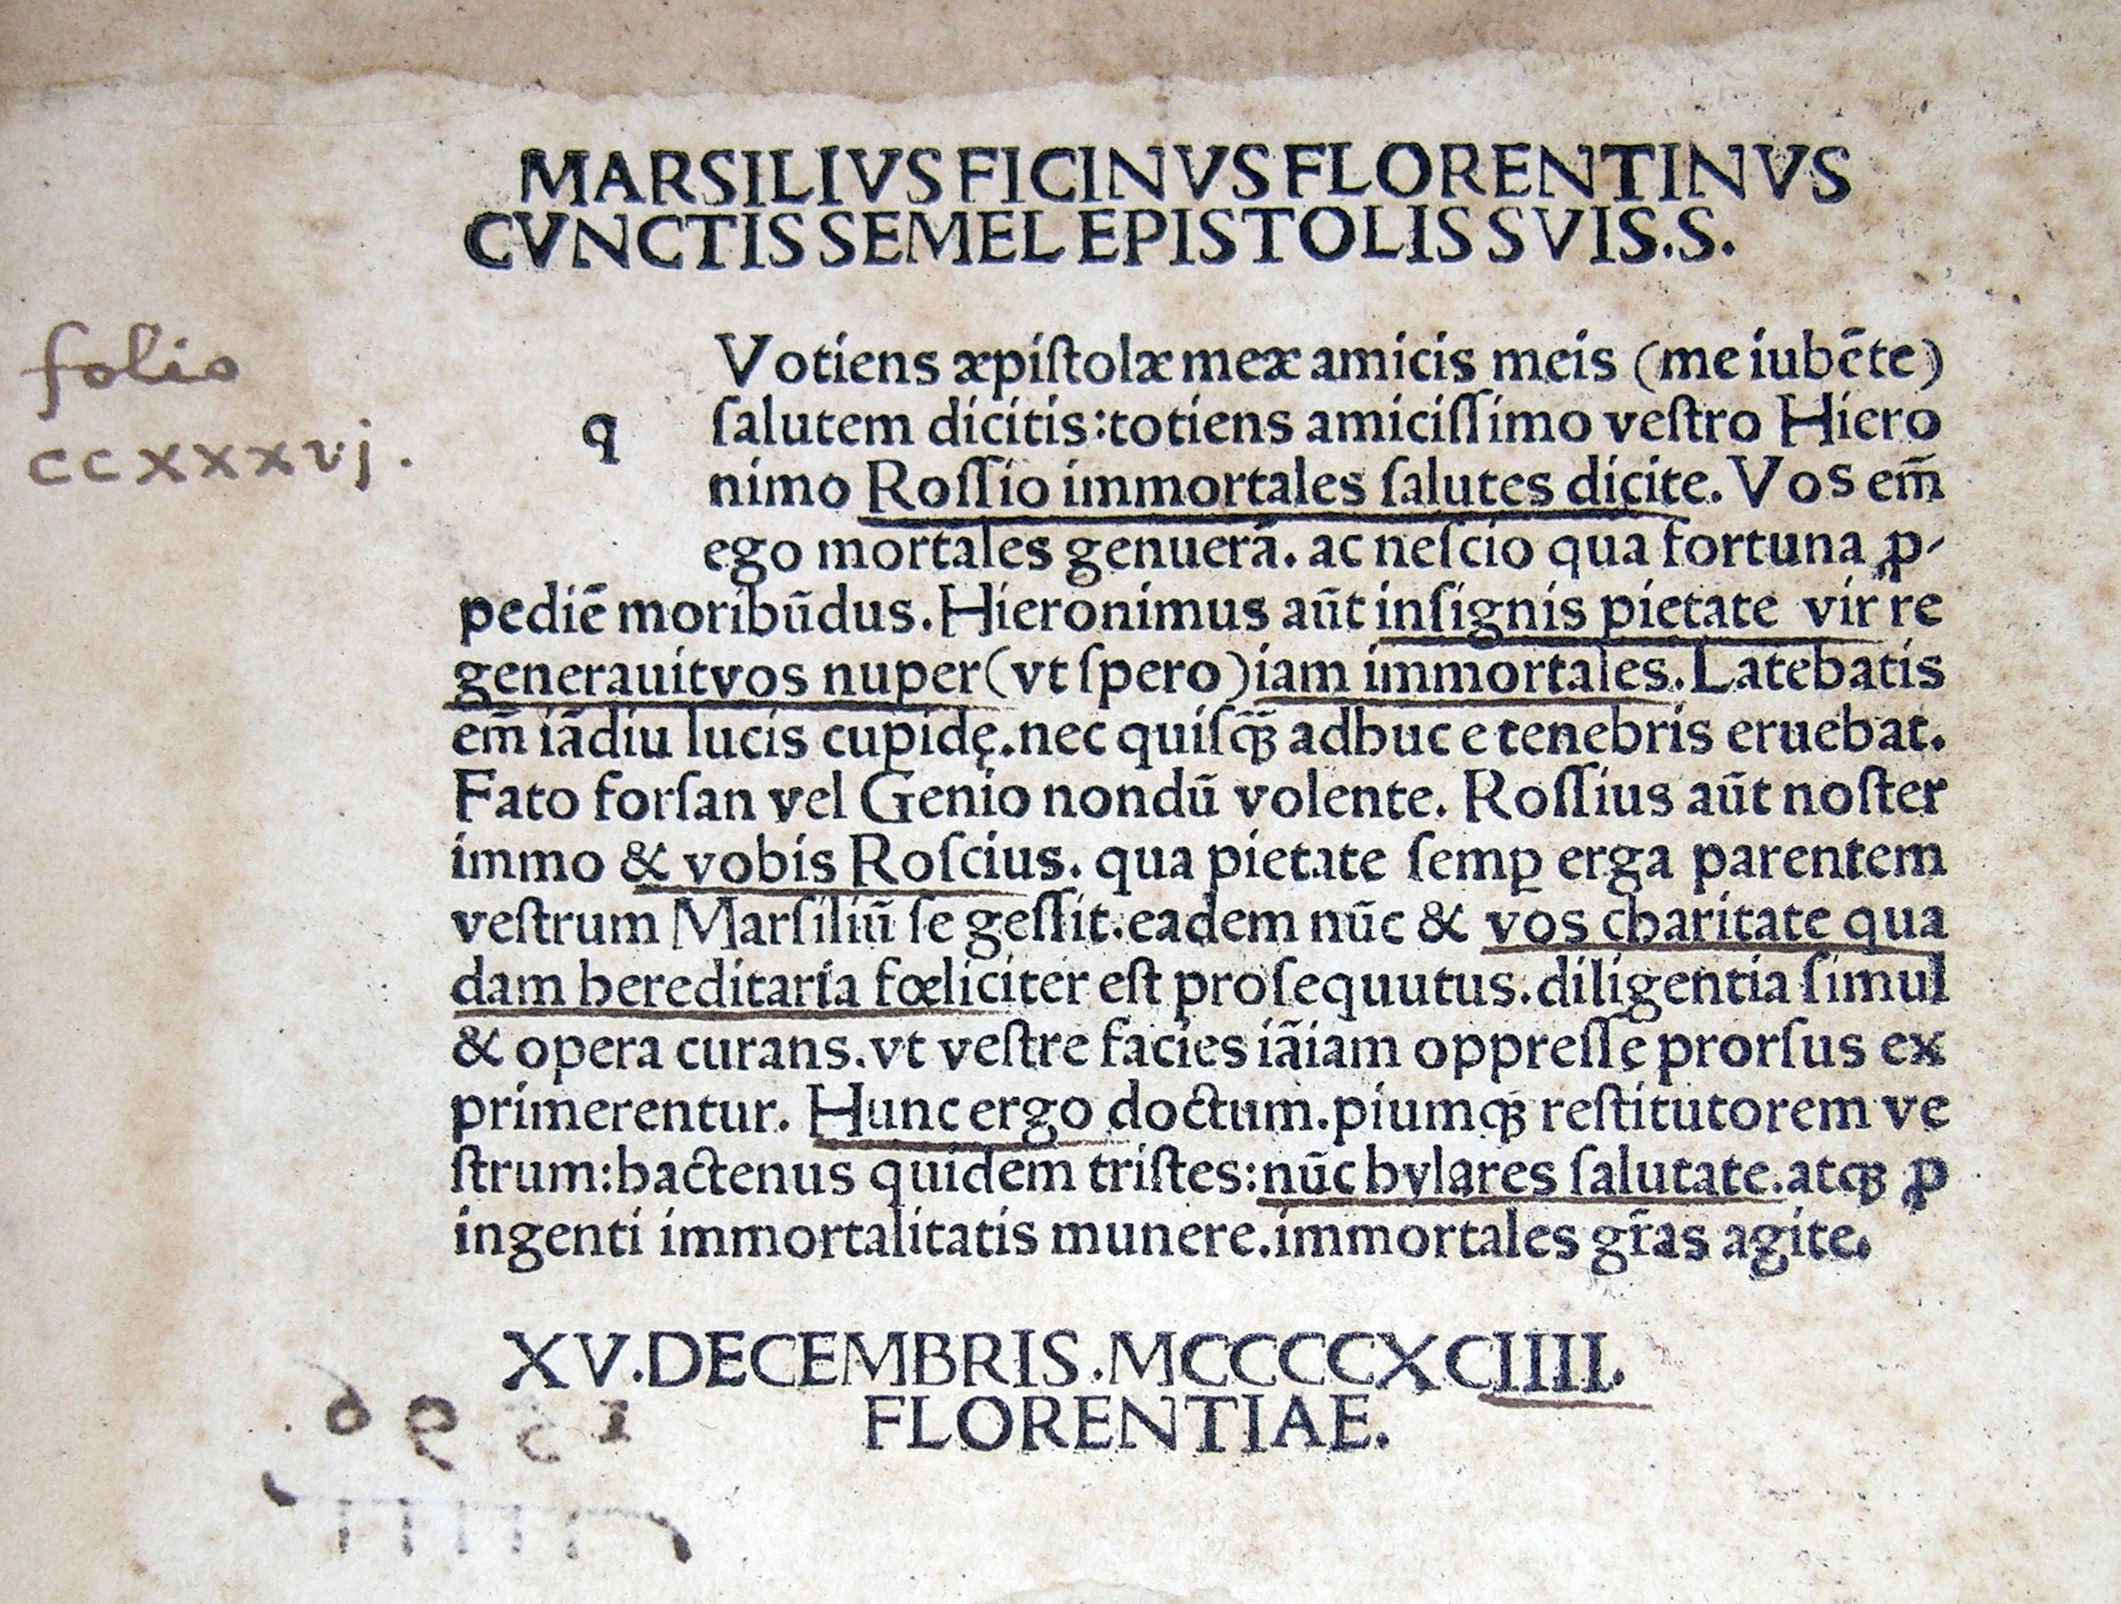 MARSILIVS FICINVS FLORENTINVS
CVNCTIS SEMEL EPISTOLIS SVIS.S.
folio
ccxxxvj.
Votiens æpiſtolæ meæ amicis meis (me iubẽte)
q
ſalutem dicitis:totiens amiciſſimo veſtro Hiero
nimo Roſſio immortales ſalutes dicite. Vos em̃
ego mortales genuerã. ac neſcio qua fortuna ꝓ-
pediẽ moribũdus. Hieronimus aũt inſignis pietate vir re
generauit vos nuper (vt ſpero) iam immortales. Latebatis
em̃ iãdiu lucis cupidę. nec quiſq̃ꝫ adhuc e tenebris eruebat.
Fato forſan vel Genio nondũ volente. Roſſius aũt noſter
immo & vobis Roſcius. qua pietate ſemꝑ erga parentem
veſtrum Marſiliũ ſe geſſit. eadem nũc & vos charitate qua
dam hereditaria fœliciter eſt proſequutus. diligentia ſimul
& opera curans. vt veſtre facies iãiam oppreſſę prorſus ex
primerentur. Hunc ergo doctum. piumqꝫ reſtitutorem ve
ſtrum: hactenus quidem triſtes: nũc hylares ſalutate. atqꝫ ꝓ
ingenti immortalitatis munere. immortales gr̃as agite.
XV.DECEMBRIS.MCCCCXCIIII.
FLORENTIAE.